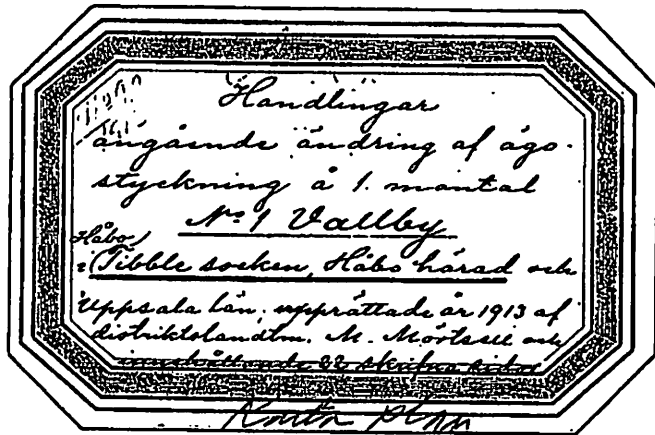 Handlingar
angående ändring af ägo-
styckning å 1. mantal
No 1 Vallby
Håbo
i (Tibble socken, Håbo härad och
Uppsala län; upprättade år 1913 af
distriktslandtm. M. och
innehållande 22 skrifna sidor
Karta